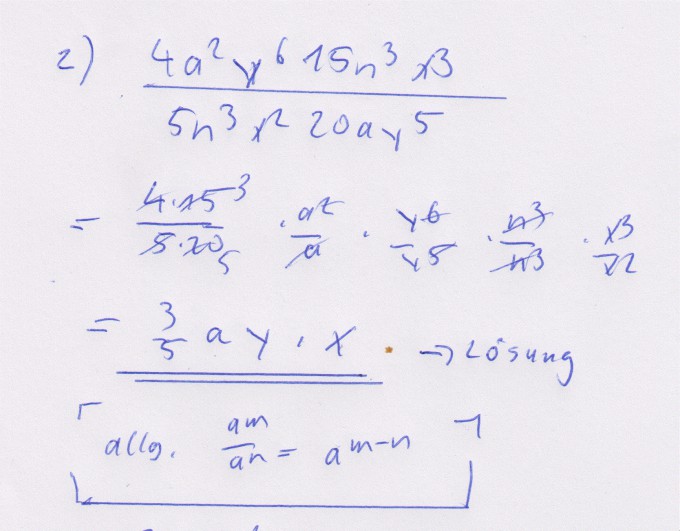 2) 4a² y⁶ 15n³ x³
5n³ x² 20ay⁵
= 4·15³ / 5·20₅ · a² / a · y⁶ / y⁵ · n³ / n³ · x³ / x²
= 3/5 a y · x · → Lösung
allg. aᵐ / aⁿ = aᵐ⁻ⁿ